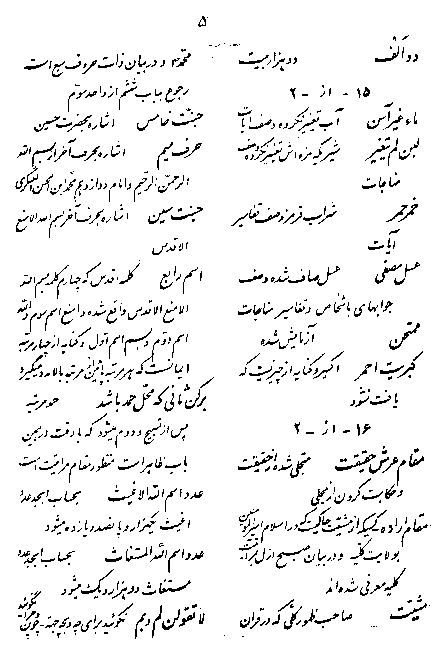 ۵
دو الف دو هزار بیت
۱۵ - از - ۲
ماء غیر آسن آب تغییر نکرده وصف آیات
لبن لم یتغیر شیریکه مزه اش تغییر نکرده وصف
مناجات
خمر حمر شراب قرمز وصف تفاسیر
آیات
عسل مصفی عسل صاف شده وصف
جوابهای باشخاص و تفاسیر مناجات
ممتحن آزمایش شده
کبریت احمر اکسیر و کنایه از چیزیست که
یافت نشود
۱۶ - از - ۲
مقام عرش حقیقت متجلی شده از حقیقت
و حکایت کردن از متجلی
مقام اراده کسیکه از مشیت حاکیست که در اسلام
بولایت کلیه و در بیان مسیح ازل
کلیه معرفی شده اند
مشیت صاحب ظهور کلی که در قران
محمد و در بیان ذات حروف سبع است
رجوع بباب ششم از واحد سوم
جنت خامس اشاره بحضرت حسین
حرف میم اشاره بحرف آخر از بسم الله
الرحمن الرحیم و امام دوازدهم محمد بن الحسن العسکری
جنت سین اشاره بحرف آخر بسم الله الامنع
الاقدس
اسم رابع کلمه اقدس که چهارم کلمه بسم الله
الامنع الاقدس واقع شده و امنع اسم سوم و الله
اسم دوم و بسم اسم اول و کنایه از چهار مرتبه
ایمانست که هر مرتبه بالا مدد میگیرد
برکن ثانی که محل حمد باشد مرتبه
پس از تسبیح و دوم میشود که با دقت در همین
باب ظاهر است منظور مقام مراقبت است
عدد اسم الله الاغیث بحساب ابجد عدد
اغیث یکهزار و پانصد و یازده میشود
عدد اسم الله المستغاث بحساب ابجد عدد
مستغاث دو هزار و یک میشود
لا تقولن لم و بم نگوئید برای چه و بچه جهت - چون و چرا نگوئید